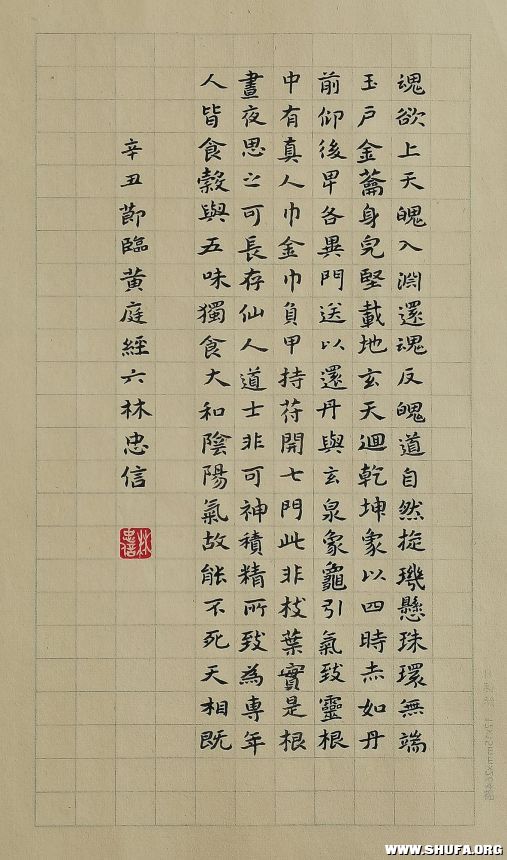 魂欲上天魄入淵還魂反魄道自然旋璣懸珠環無端
玉戶金籥身皃堅載地玄天迴乾坤象以四時赤如丹
前仰後卑各異門送以還丹與玄泉象龜引氣致靈根
中有真人巾金巾負甲持苻開七門此非枝葉實是根
晝夜思之可長存仙人道士非可神積精所致為専年
人皆食糓與五味獨食大和陰陽氣故能不死天相既
辛丑莭臨黃庭經六林忠信
林忠信
WWW.SHUFA.ORG